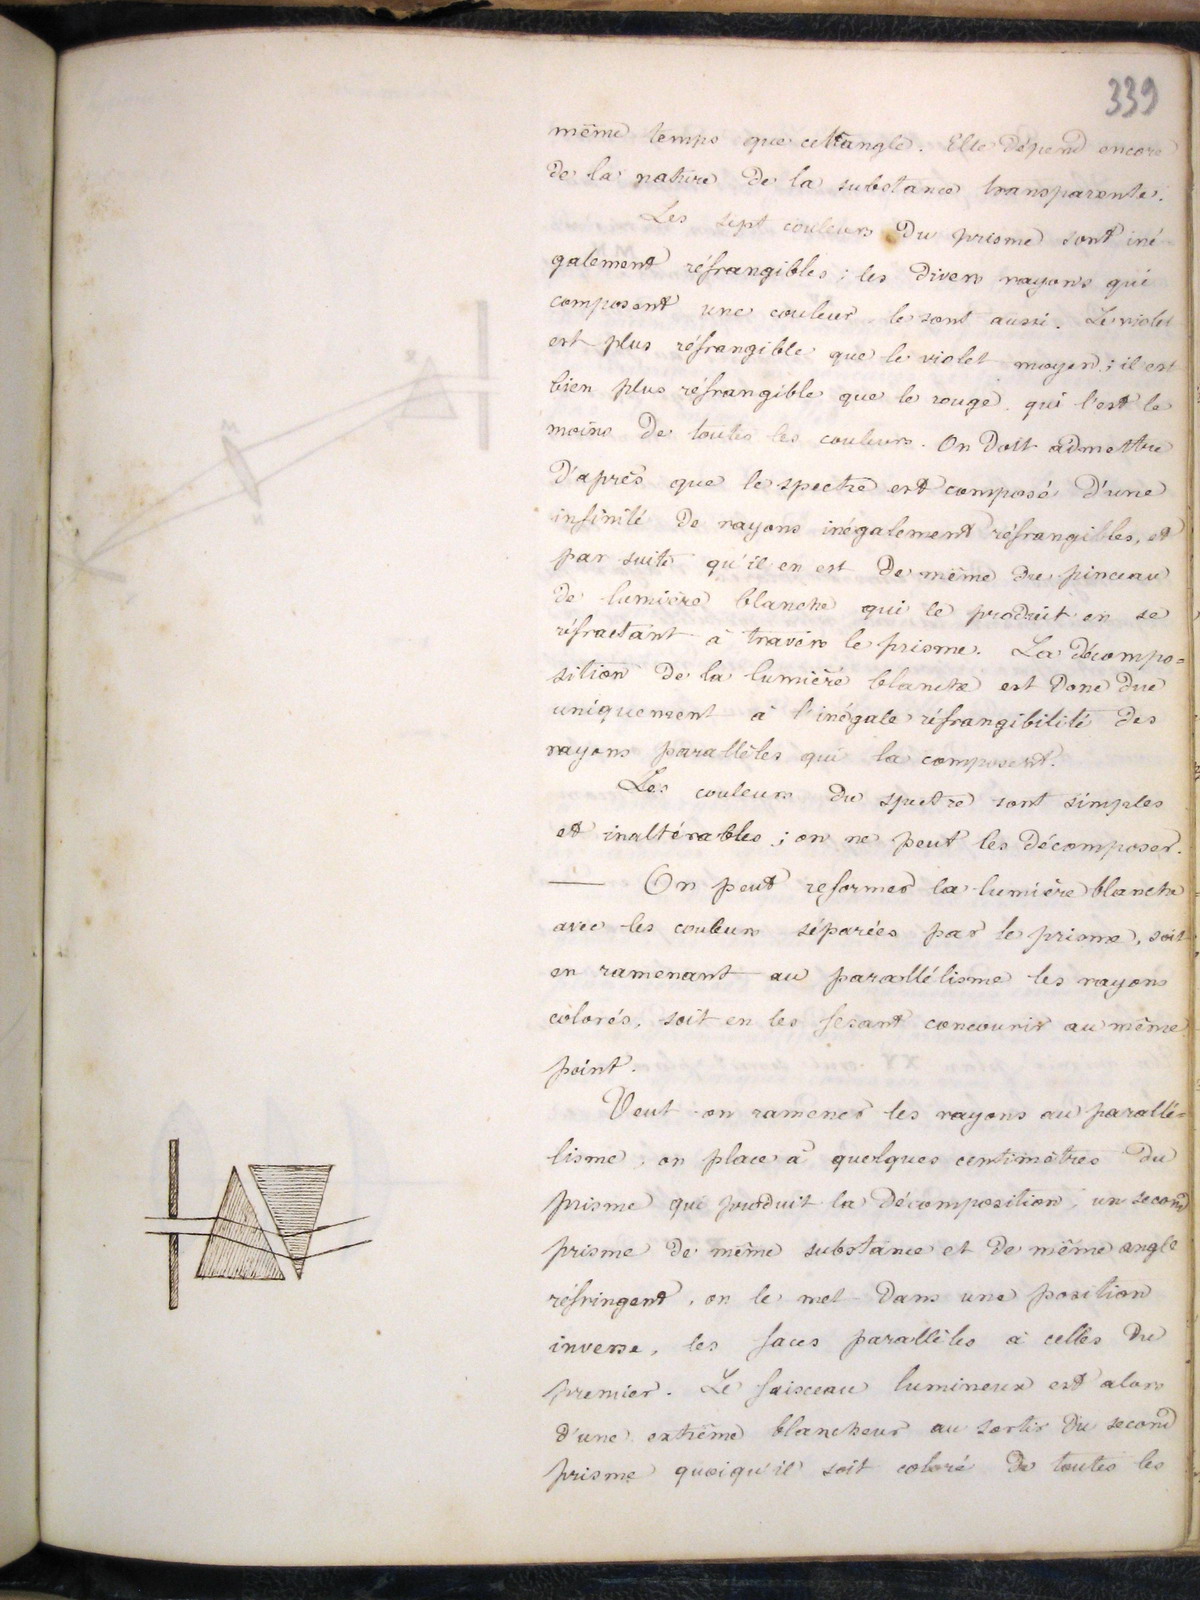 339
même temps que cet angle. Elle dépend encore
de la nature de la substance transparente.
Les sept couleurs du prisme sont iné-
galement réfrangibles ; les divers rayons qui
composent une couleur le sont aussi. Le violet
est plus réfrangible que le violet moyen ; il est
bien plus réfrangible que le rouge qui l'est le
moins de toutes les couleurs. On doit admettre
d'après que le spectre est composé d'une
infinité de rayons inégalement réfrangibles, et
par suite qu'il en est de même du pinceau
de lumière blanche qui le produit en se
réfractant à travers le prisme. La décompo=
sition de la lumière blanche est donc due
uniquement à l'inégale réfrangibilité des
rayons parallèles qui la composent.
Les couleurs du spectre sont simples
et inaltérables ; on ne peut les décomposer.
— On peut reformer la lumière blanche
avec les couleurs séparées par le prisme, soit
en ramenant au parallélisme les rayons
colorés, soit en les fesant concourir au même
point.
Veut-on ramener les rayons au parallé=
lisme, on place à quelques centimètres du
prisme qui produit la décomposition, un second
prisme de même substance et de même angle
réfringent, on le met dans une position
inverse, les faces parallèles à celles du
premier. Le faisceau lumineux est alors
d'une extrême blancheur au sortir du second
prisme quoiqu'il soit coloré de toutes les